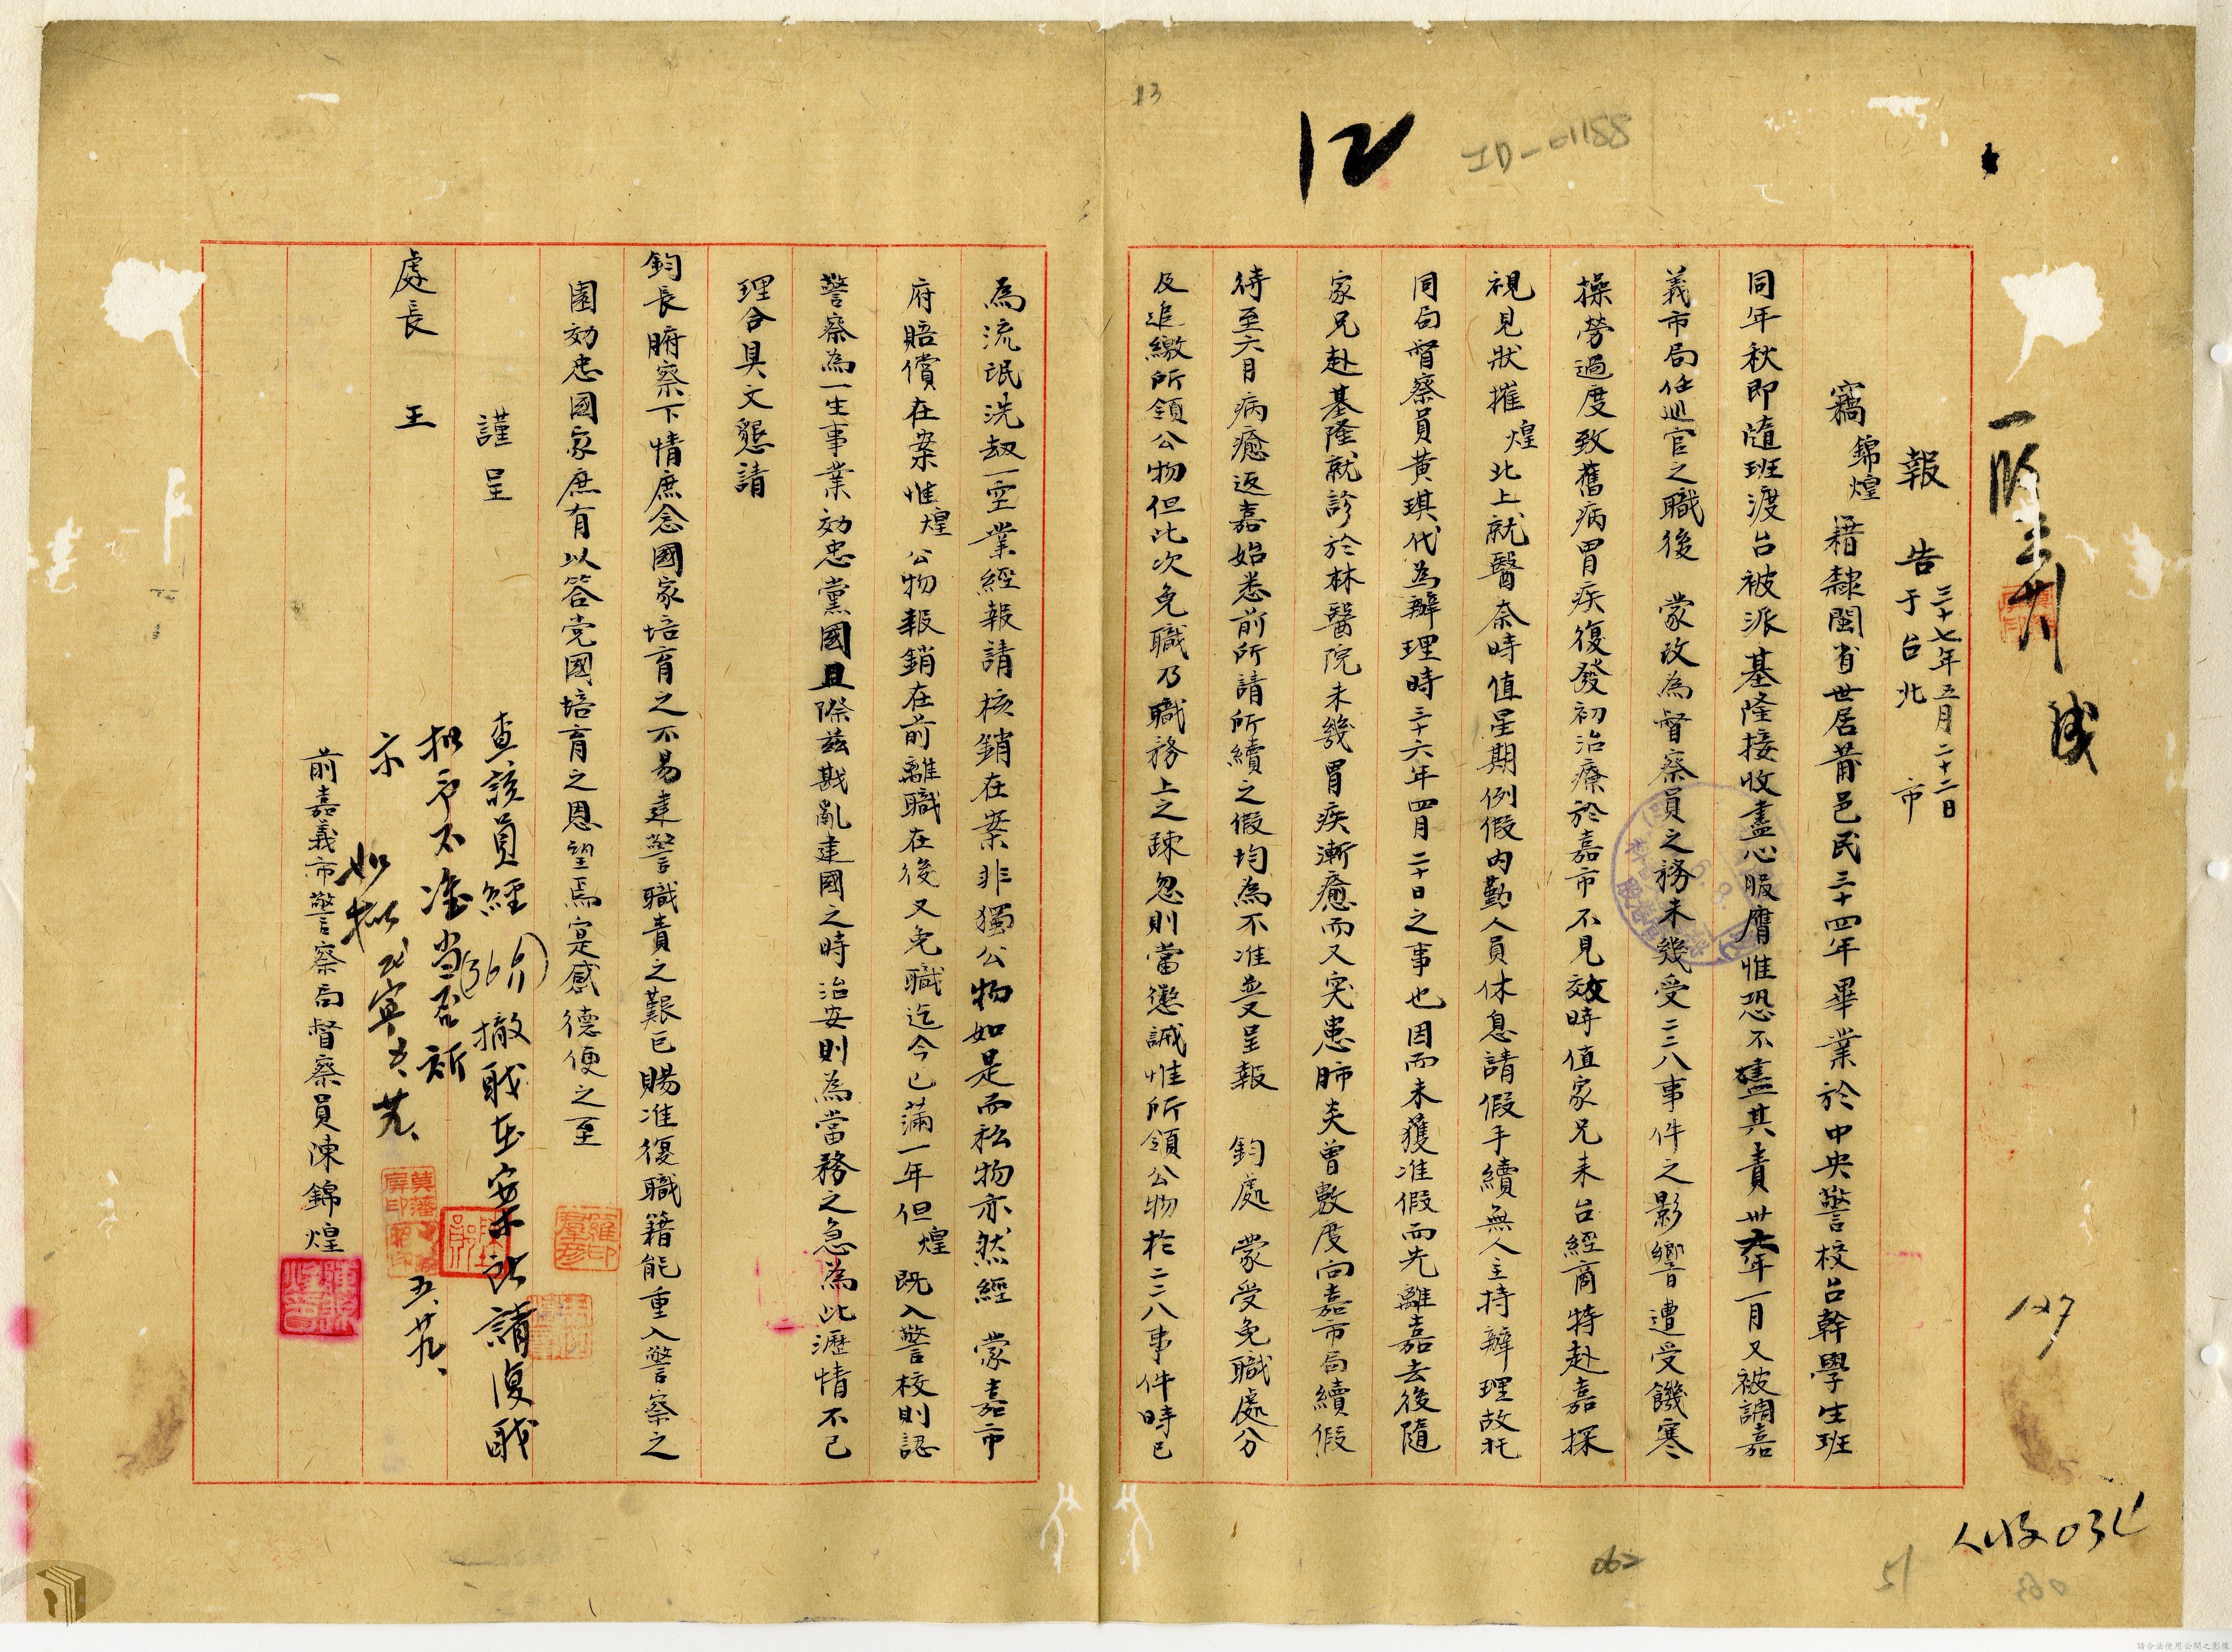 13
12
ID-01188
報告
三十七年五月二十二日
于台北市
竊錦煌籍隸閩省世居莆邑民三十四年畢業於中央警校台幹學生班
同年秋即隨班渡台被派基隆接收盡心服膺惟恐不盡其責卅六年一月又被調嘉
義市局任巡官之職後　蒙改為督察員之務未幾受二二八事件之影響遭受饑寒
操勞過度致舊病胃疾復發初治療於嘉市不見效時值家兄來台經商特赴嘉探
視見狀摧煌北上就醫奈時值星期例假內勤人員休息請假手續無人主持辦理故托
同局督察員黃琪代為辦理時三十六年四月二十日之事也因而未獲准假而先離嘉去後隨
家兄赴基隆就診於林醫院未幾胃疾漸癒而又突患肺炎曾數度向嘉市局續假
待至六月病癒返嘉始悉前所請所續之假均為不准並又呈報　鈞處　蒙受免職處分
及追繳所領公物但此次免職乃職務上之疎忽則當懲誡惟所領公物於二二八事件時已
為流氓洗刼一空業經報請核銷在案非獨公物如是而私物亦然經　蒙嘉市
府賠償在案惟煌公物報銷在前離職在後又免職迄今已滿一年但煌既入警校則認
警察為一生事業効忠黨國且際茲戡亂建國之時治安則為當務之急為此瀝情不已
理合具文懇請
鈞長腑察下情庶念國家培育之不易建警職責之艱巨賜准復職籍能重入警察之
園効忠國家庶有以答党國培育之恩望焉寔感德便之至
謹呈
處長　王
查該員經(36)撤职在案所請復职
拟予不准當否祈
示
五、廿九、
如拟
前嘉義市警察局督察員陳錦煌
127
人收034
062
51
063
請合法使用公開之影像